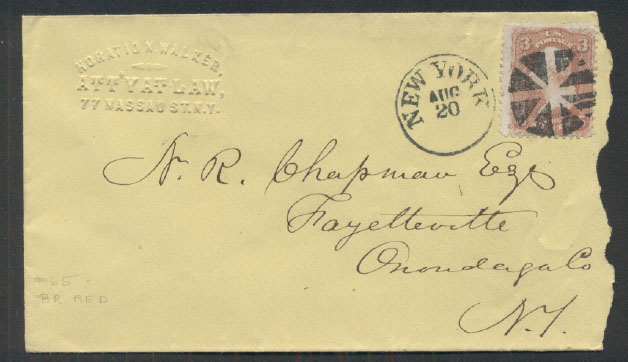 HORATIO N WALKER,
ATT'Y AT LAW,
77 NASSAU ST. N.Y.
NEW YORK
AUG
20
3 U.S. 3
POSTAGE
N. R. Chapman Esq
Fayetteville
Onondaga Co
N.Y.
#65
BR. RED